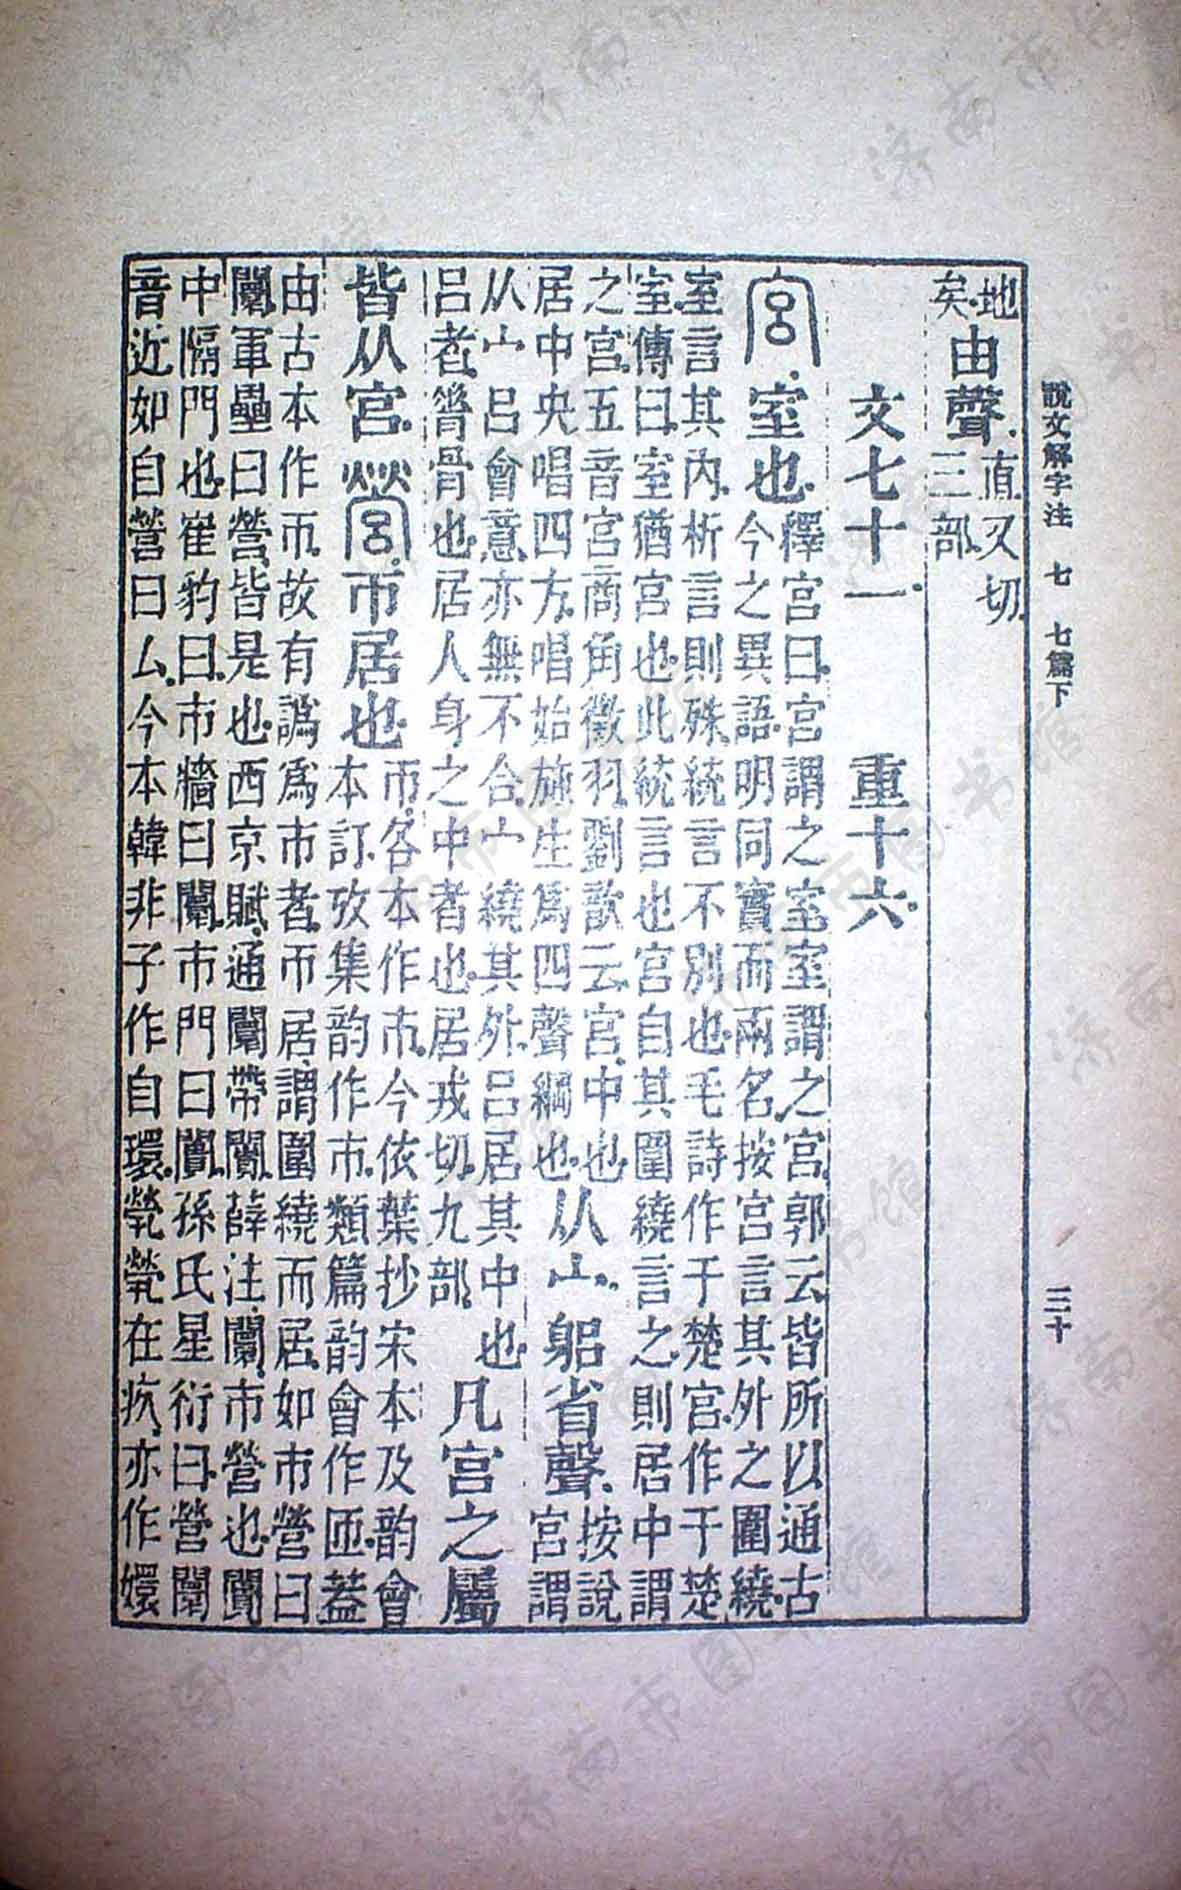 說文解字注 七 七篇下 三十
地
矣由聲直又切
三部
文七十一 重十六
宮室也釋宮曰宮謂之室室謂之宮郭云皆所以通古
今之異語明同實而兩名按宮言其外之圍繞
室言其內析言則殊統言不別也毛詩作于楚宮作于楚
室傳曰室猶宮也此統言也宮自其圍繞言之則居中謂
之宮五音宮商角徵羽劉歆云宮中也从宀躳省聲按說
居中央唱四方唱始施生爲四聲綱也宮謂
从宀呂會意亦無不合宀繞其外呂居其中也凡宮之屬
呂者膂骨也居人身之中者也居戎切九部
皆从宮營帀居也帀各本作市今依葉抄宋本及韵會
本訂攷集韵作市類篇韵會作匝葢
由古本作帀故有譌爲市者帀居謂圍繞而居如市營曰
闤軍壘曰營皆是也西京賦通闤帶闠薛注闤市營也闠
中隔門也崔豹曰市牆曰闤市門曰闠孫氏星衍曰營闤
音近如自營曰厶今本韓非子作自環煢煢在疚亦作嬛